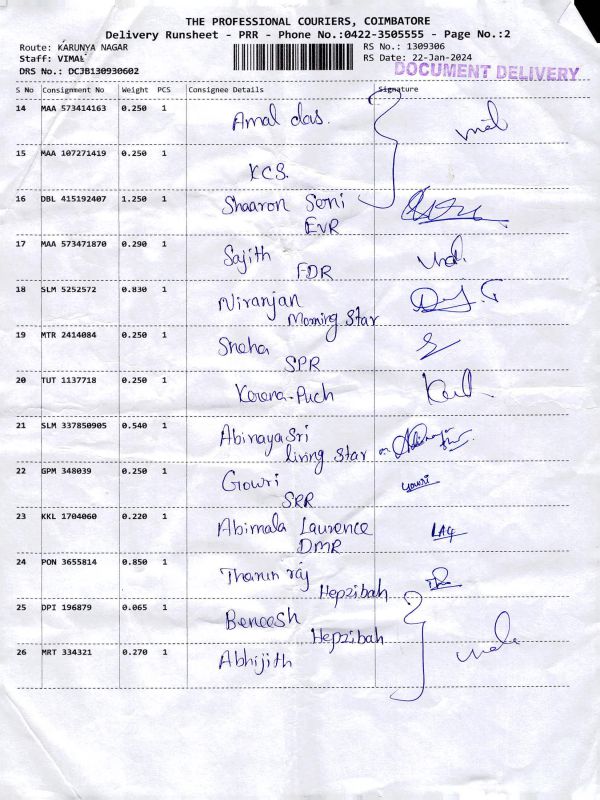 THE PROFESSIONAL COURIERS, COIMBATORE
Delivery Runsheet - PRR - Phone No.:0422-3505555 - Page No.:2
Route: KARUNYA NAGAR
RS No.: 1309306
Staff: VIMAL
RS Date: 22-Jan-2024
DRS No.: DCJB130930602
DOCUMENT DELIVERY
S No Consignment No Weight PCS Consignee Details Signature
14 MAA 573414163 0.250 1
Amal das.
15 MAA 107271419 0.250 1
KCS.
16 DBL 415192407 1.250 1
Shaaron Soni
EVR
17 MAA 573471870 0.290 1
Sajith
FDR
18 SLM 5252572 0.830 1
Niranjan
Morning Star
19 MTR 2414084 0.250 1
Sneha
SPR
20 TUT 1137718 0.250 1
Kerena-Puch
21 SLM 337850905 0.540 1
Abinaya Sri
living Star
22 GPM 348039 0.250 1
Gowri gowri
SRR
23 KKL 1704060 0.220 1
Abimala Laurence
DMR
24 PON 3655814 0.850 1
Tharun raj
Hepzibah
25 DPI 196879 0.065 1
Beneesh
Hepzibah
26 MRT 334321 0.270 1
Abhijith